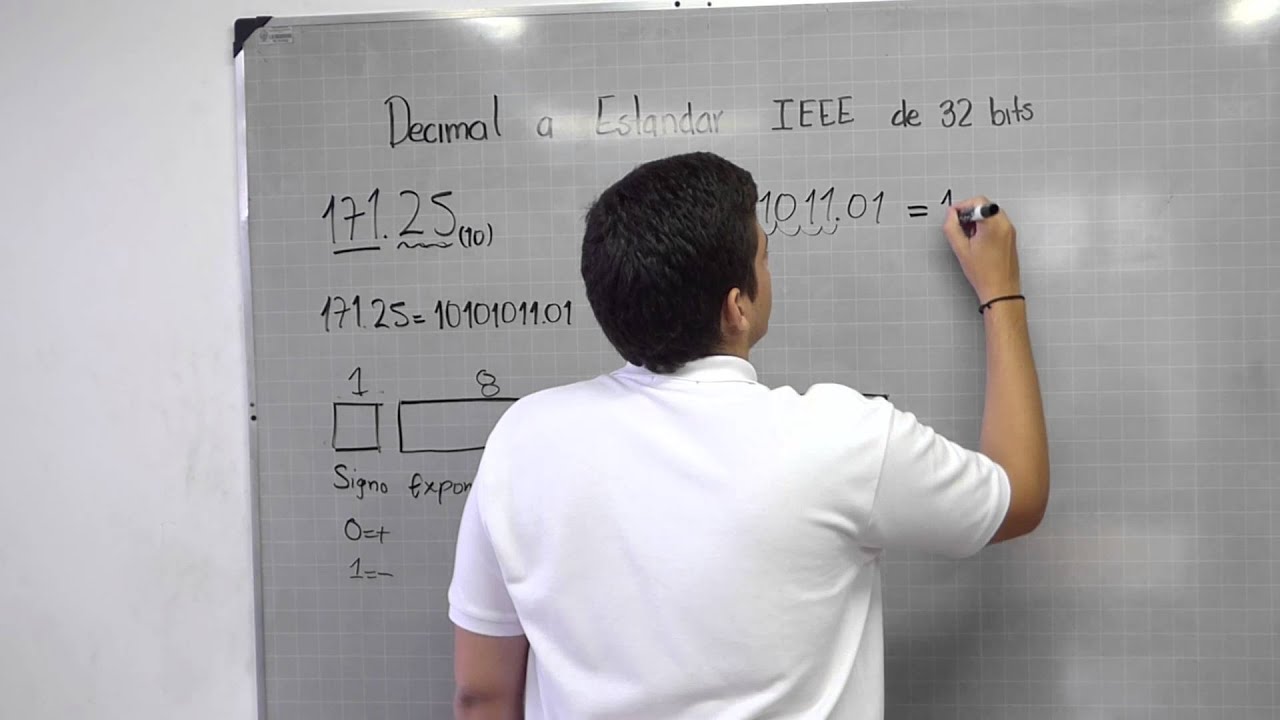 Decimal a Estandar IEEE de 32 bits
171.25(10)
1011.01 = 1
171.25=10101011.01
1 8
Signo Expon
0=+
1=-